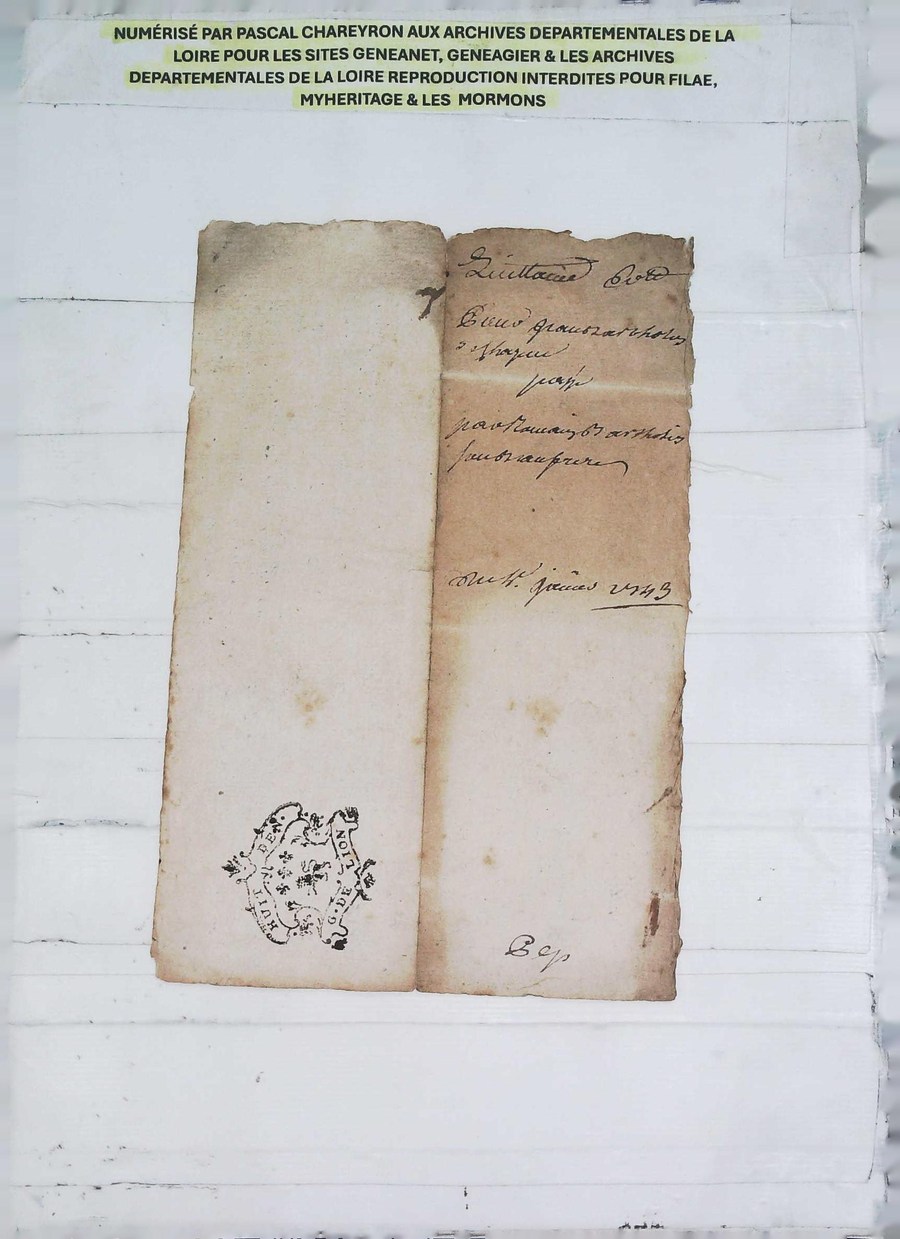 NUMÉRISÉ PAR PASCAL CHAREYRON AUX ARCHIVES DEPARTEMENTALES DE LA
LOIRE POUR LES SITES GENEANET, GENEAGIER & LES ARCHIVES
DEPARTEMENTALES DE LA LOIRE REPRODUCTION INTERDITES POUR FILAE,
MYHERITAGE & LES MORMONS
Quittance
pour
passé
par Romain Bartholin
son frere
Du 4e 1743
HUIT DEN.
G. DE LION